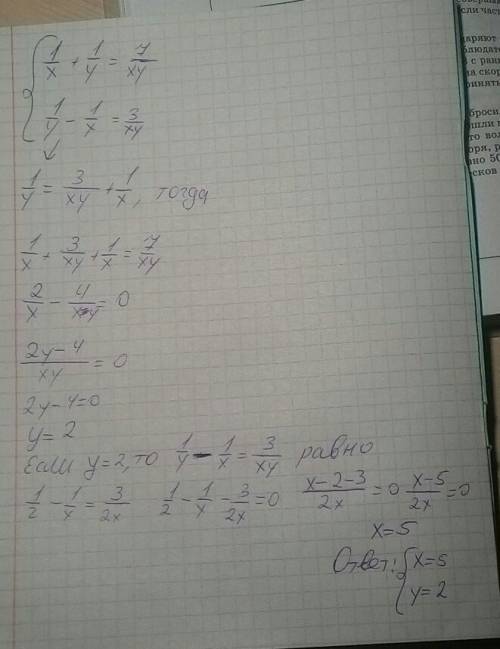 { 1/x + 1/y = 7/xy
1/y - 1/x = 3/xy
↓
1/y = 3/xy + 1/x, тогда
1/x + 3/xy + 1/x = 7/xy
2/x - 4/xy = 0
(2y-4)/xy = 0
2y-4=0
y = 2
Если y=2, то 1/y - 1/x = 3/xy равно
1/2 - 1/x = 3/2x   1/2 - 1/x - 3/2x = 0   (x-2-3)/2x = 0   (x-5)/2x = 0
x=5
Ответ: { x=5
y=2
даряют
с ран
на скор
бросил
50